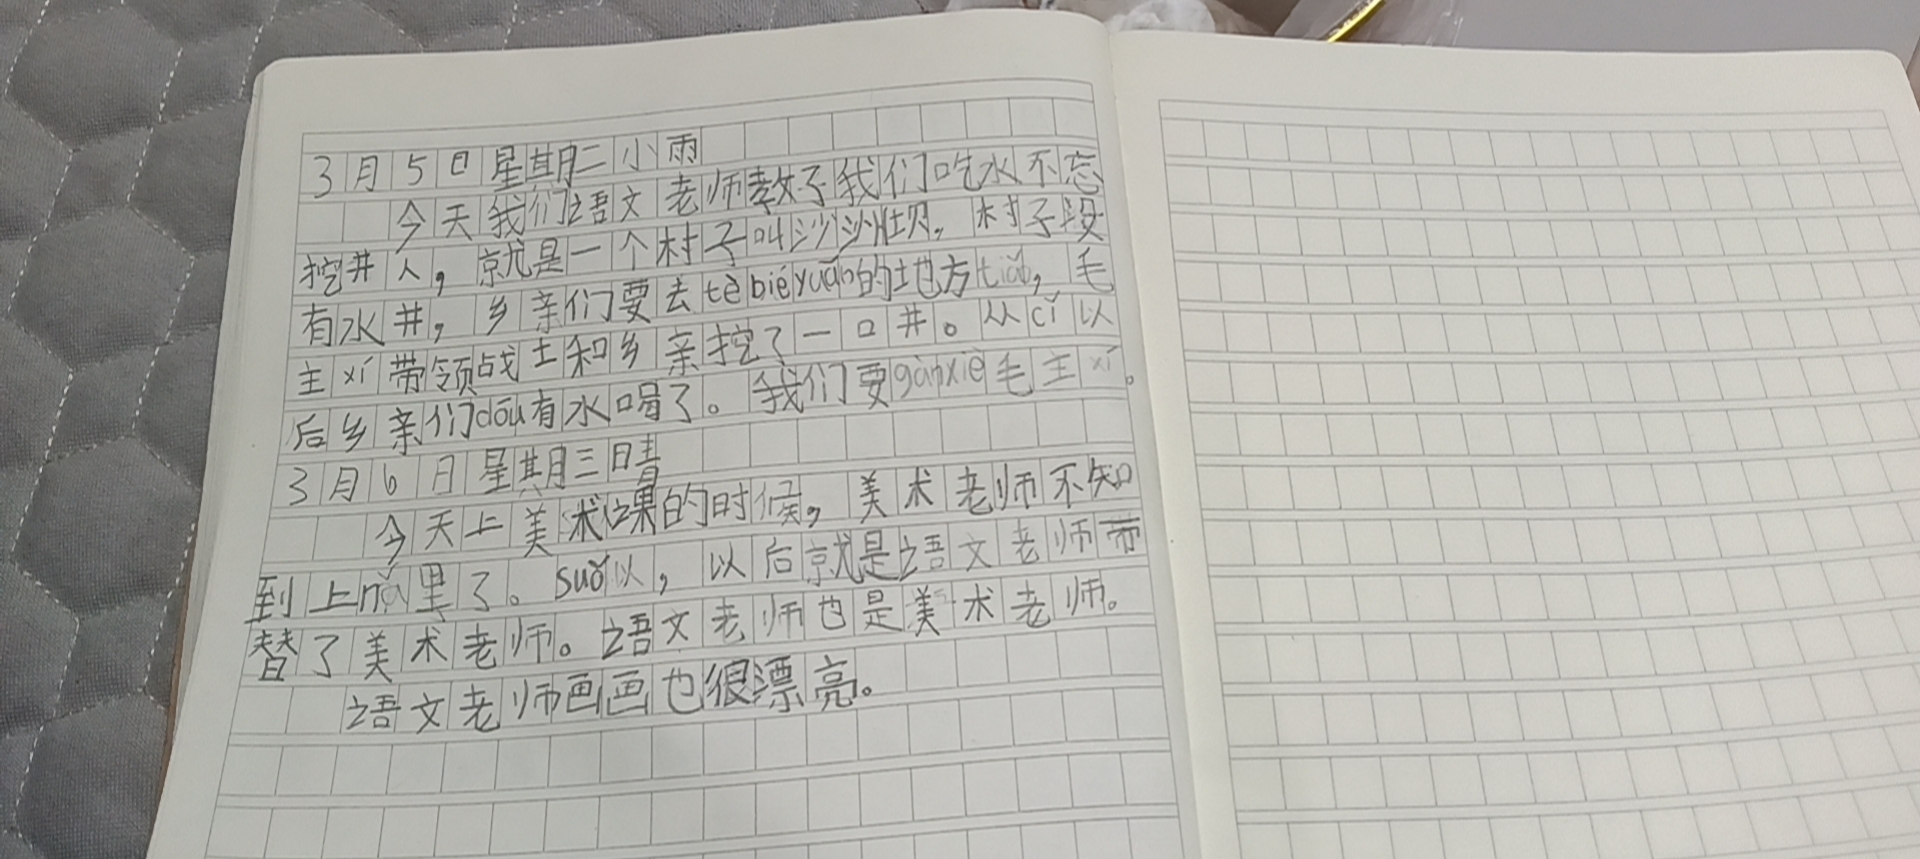 3月5日星期二小雨
今天我们语文老师教了我们吃水不忘
挖井人，就是一个村子叫沙沙坝。村子段
有水井，乡亲们要去tè bié yuǎn的地方tiāo，毛
主xí带领战士和乡亲挖了一口井。从cǐ以
后乡亲们dōu有水喝了。我们要gǎnxiè毛主xí。
3月6日星期三晴
今天上美术课的时候，美术老师不知
到上nǎ里了。suǒ以，以后就是语文老师带
替了美术老师。语文老师也是美术老师。
语文老师画画也很漂亮。